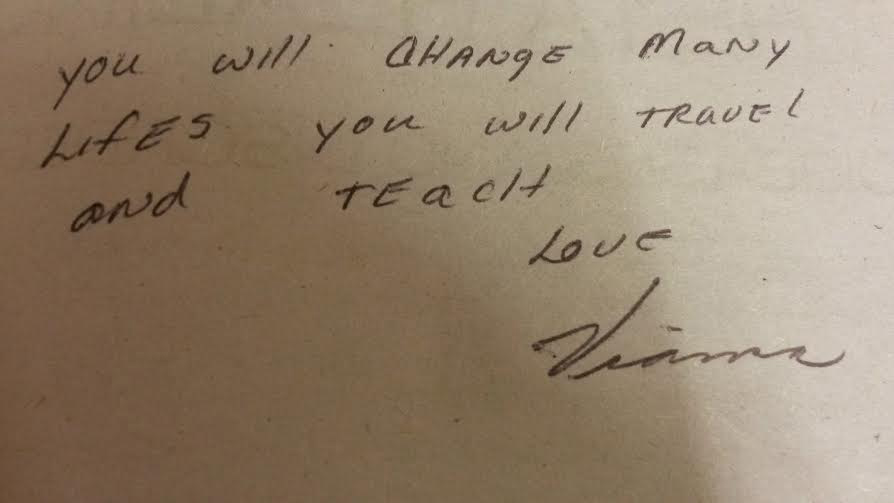 you will CHANgE MaNy
LifES you will TRAVEL
and TEacH
LOVE
Vianna